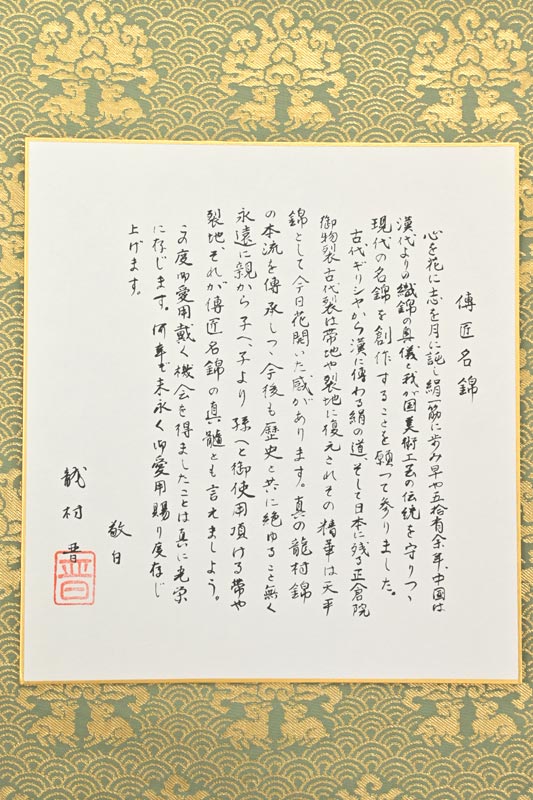 傳匠名錦
心を花に志を月に託し絹一筋に歩み早や五拾有余年、中国は
漢代よりの織錦の奥儀と我が国美術工芸の伝統を守りつゝ
現代の名錦を創作することを願って参りました。
古代ギリシヤから漢に傳わる絹の道そして日本に残る正倉院
御物裂古代裂は帯地や裂地に復元されその精華は天平
錦として今日花開いた感があります。真の龍村錦
の本流を傳承しつゝ今後も歴史と共に絶ゆること無く
永遠に親から子へ、子より孫へと御使用頂ける帯や
裂地それが傳匠名錦の真髄とも言えましょう。
この度御愛用戴く機会を得ましたことは真に光栄
に存じます。何卒末永く御愛用賜り度存じ
上げます。
敬白
龍村晋
晋